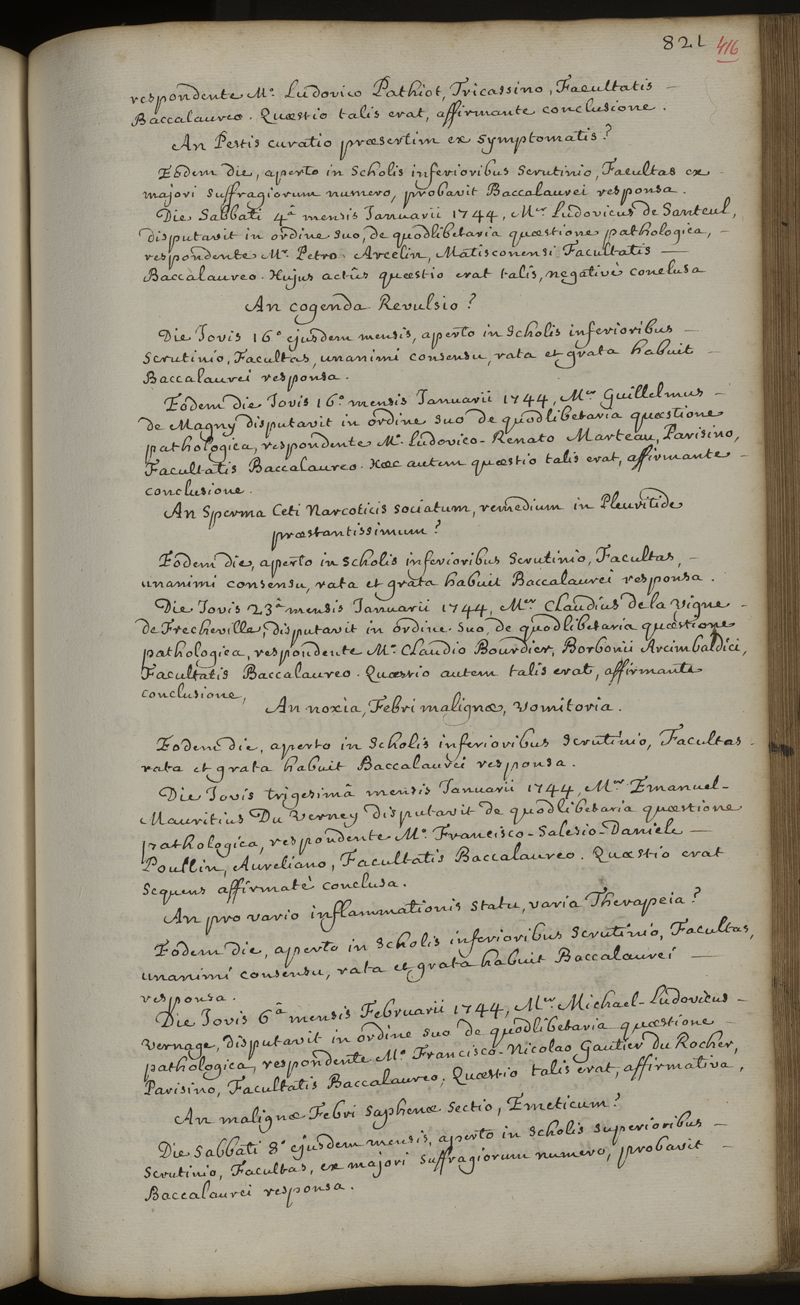 821 416
respondente Mo. Ludovico Pathiot, Tricassino, Facultatis –
Baccalaureo. Quæstio talis erat, affirmante conclusione.
An Pestis curatio præsertim ex symptomatis?
Eôdem die, aperto in Scholis inferioribus Scrutinio, Facultas ex –
majori Suffragiorum numero, probavit Baccalaurei responsa.
Die Sabbati 4â mensis Januarii 1744, Mer Ludovicus de Santeul,
disputavit in ordine suo, de quodlibetaria quæstione pathologica, –
respondente Mo. Petro Arcelin, Matisconensi Facultatis —
Baccalaureo. Hujus actûs quæstio erat talis, negativè conclusa
An cogenda Revulsio?
Die Jovis 16o ejusdem mensis, aperto in Scholis inferioribus –
Scrutinio, Facultas, unanimi consensu, rata et grata habuit –
Baccalaurei responsa.
Eôdem die Jovis 16o mensis Januarii 1744, Mer Guillelmus –
de Magny disputavit in ordine suo de quodlibetaria quæstione
pathologica, respondente Mo. Ludovico-Renato Marteau, Parisino,
Facultatis Baccalaureo. Hæc autem quæstio talis erat, affirmante –
conclusione.
An Sperma Ceti Narcoticis sociatum, remedium in Pleuritide
præstantissimum?
Eôdem die, aperto in Scholis inferioribus Scrutinio, Facultas, –
unanimi consensu, rata et grata habuit Baccalaurei responsa.
Die Jovis 23â mensis Januarii 1744, Mer Claudius de la Vigne –
de Frecheville, disputavit in ordine suo, de quodlibetaria quæstione
pathologica, respondente Mo. Claudio Bourdier, Borbonii Arcimbaldici,
Facultatis Baccalaureo. Quæstio autem talis erat, affirmante
conclusione,
An noxia, Febri malignæ, vomitoria.
Eodem die, aperto in Scholis inferioribus Scrutinio, Facultas –
rata et grata habuit Baccalaurei responsa.
Die Jovis trigesimâ mensis Januarii 1744, Mer Emanuel-
Mauritius Du Verney disputavit de quodlibetaria quæstione
pathologica, respondente Mo. Francisco-Salesio-Daniele —
Poullin, Aureliano, Facultatis Baccalaureo. Quæstio erat
Sequens affirmatè conclusa.
An pro vario inflammationis Statu, varia Therapeia?
Eôdem die, aperto in Scholis inferioribus Scrutinio, Facultas,
unanimi consensu, rata et grata habuit Baccalaurei —
responsa.
Die Jovis 6â mensis Februarii 1744, Mer Michael-Ludovicus –
Vernage, disputavit in ordine suo de quodlibetaria quæstione –
pathologica, respondente Mo Francisco-Nicolao Gautier Du Rocher,
Parisino, Facultatis Baccalaureo. Quæstio talis erat, affirmativa,
An malignæ Febri Saphenæ Sectio, Emeticum?
Die Sabbati 8o ejusdem mensis, aperto in Scholis superioribus –
Scrutinio, Facultas, ex majori Suffragiorum numero, probavit –
Baccalaurei responsa.